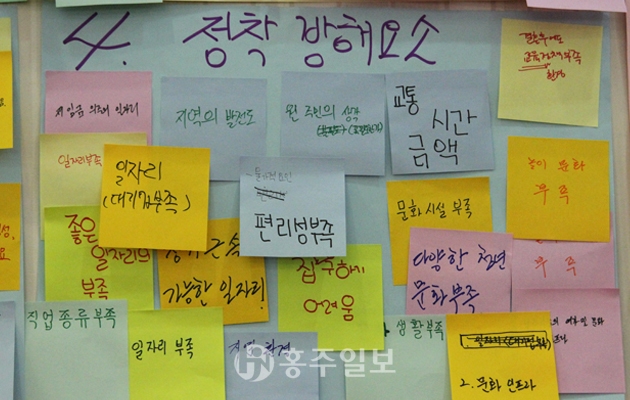 4. 정착 방해요소
저임금 위주의 일자리
지역의 발전도
원 주민의 생각
교통
시간
금액
일자리부족
일자리
(대기업부족)
편리성부족
문화시설 부족
놀이 문화
부족
부족
좋은
일자리의
부족
장기근속
가능한 일자리!
집 구하기
어려움
다양한 청년
문화부족
직업종류부족
일자리 부족
생활부족
2. 문화 인프라
홍주일보